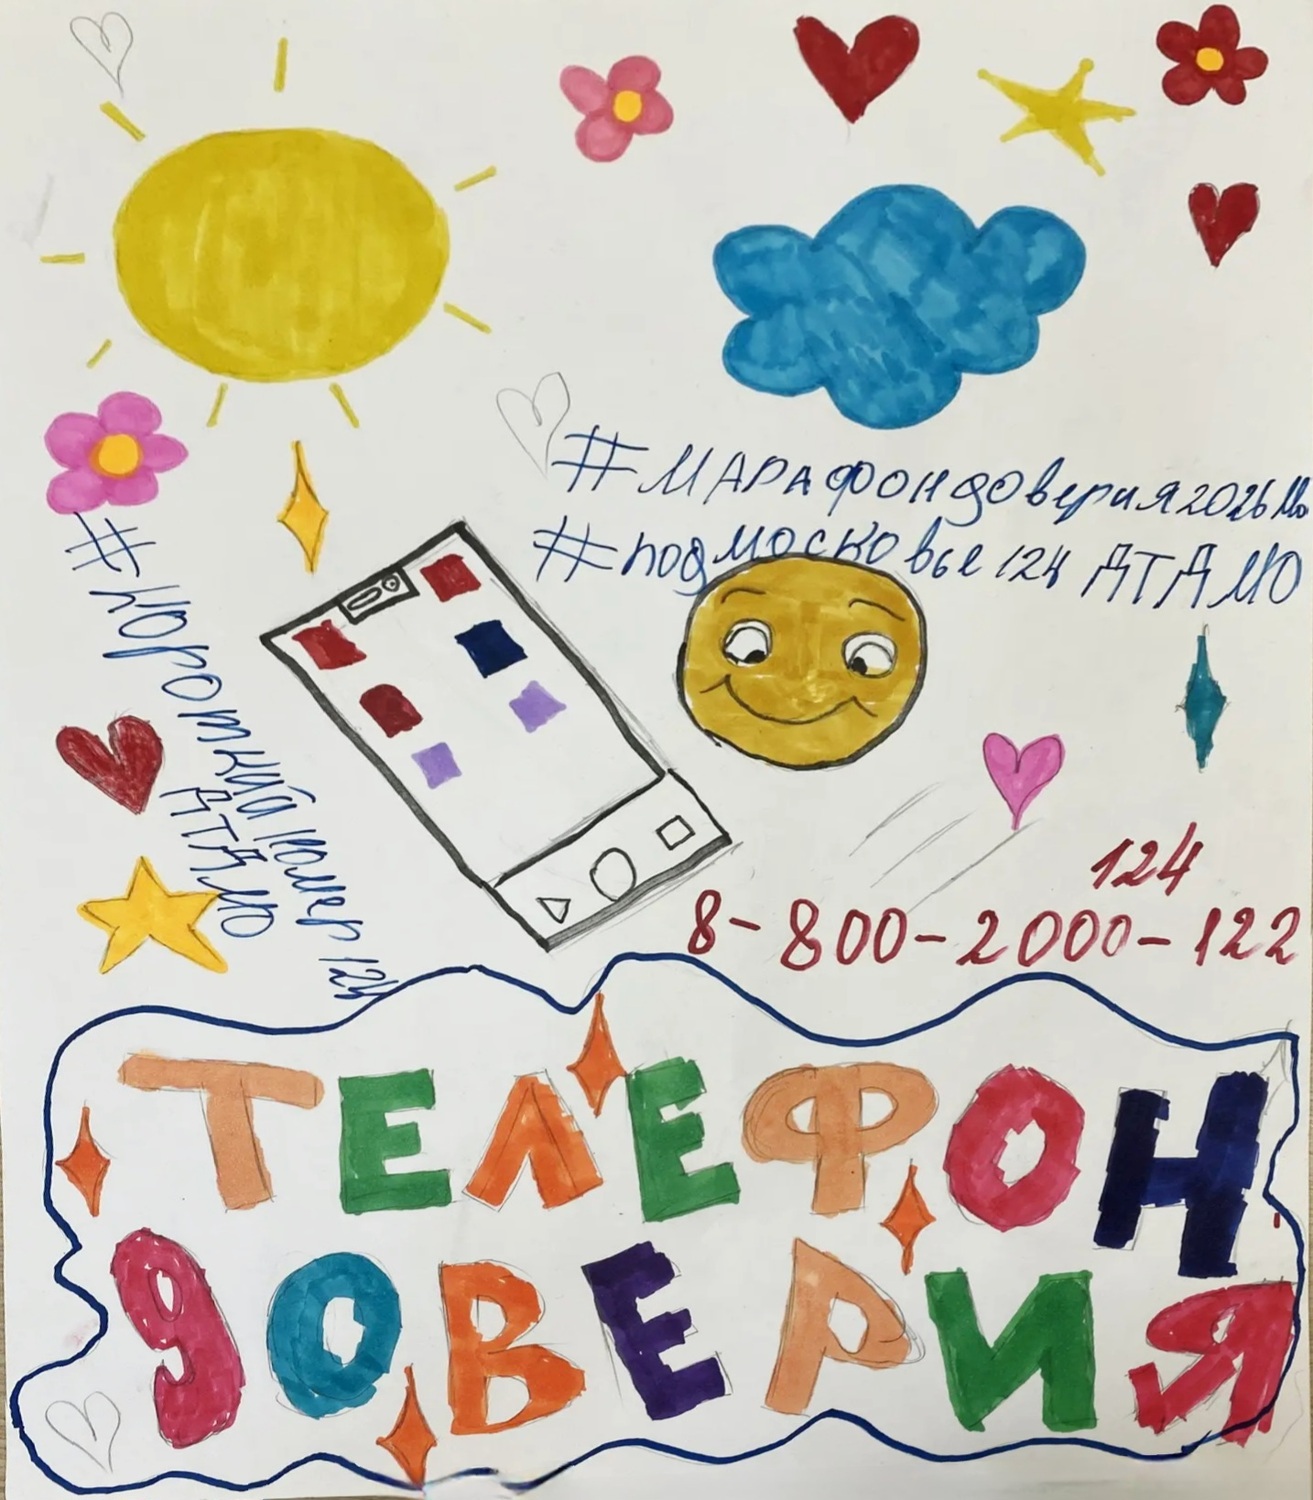 #МАРАФОНДОВЕРИЯ2026МО
#подмосковье124ДТДМО
#короткийномер124
ДТДМО
124
8-800-2000-122
ТЕЛЕФОН
ДОВЕРИЯ